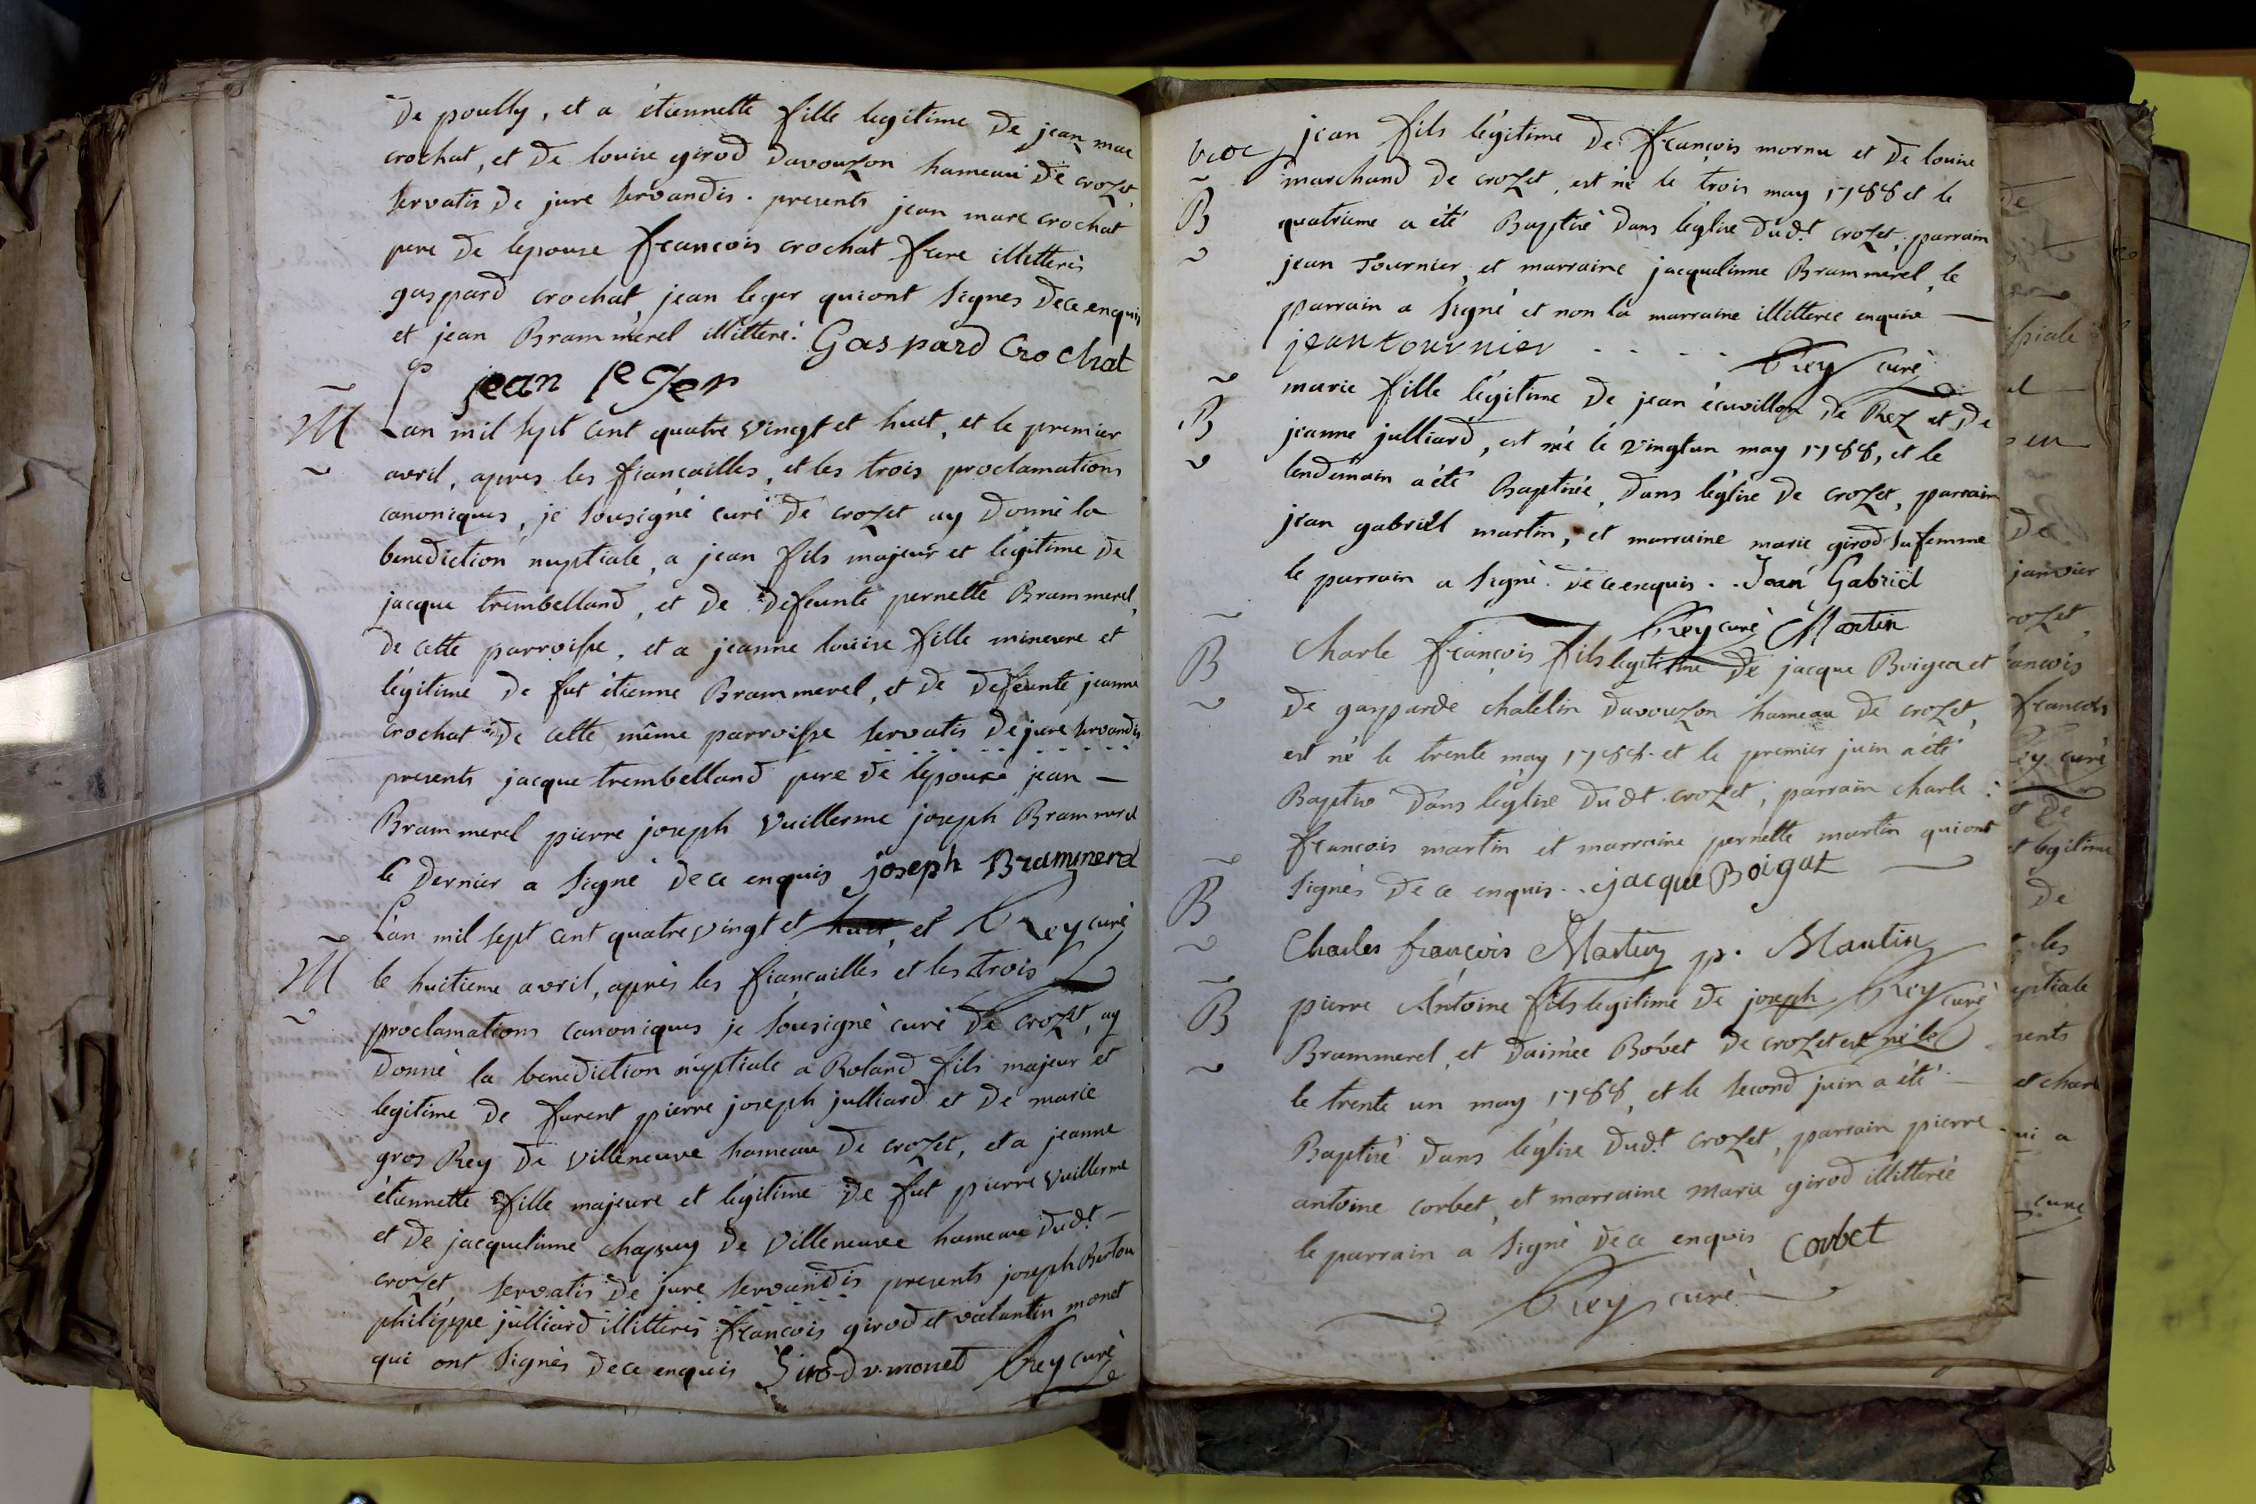 De poully, et a étiennette fille legitime De jean marc
crochat, et De louise girod Davouzon hameau De crozet,
servatis De jure servandis. presents jean marc crochat
pere De lepouse francois crochat frere illitterés
gaspard crochat jean leger quiont signés Dece enquis
et jean Brammerel illitteré. Gaspard Crochat
jean leger
M
Lan mil sept cent quatre vingt et huit, et le premier
avril, apres les fiancailles, et les trois proclamations
canoniques, je sousigné curé De crozet ay Donné la
benediction nuptiale, a jean fils majeur et légitime De
jacque trembelland, et De Defeunte pernette Brammerel,
De cette parroisse, et a jeanne louise fille mineure et
légitime De fut étienne Brammerel, et De Defeunte jeanne
crochat De cette même parroisse servatis De jure servandis
presents jacque trembelland pere De lepoux jean –
Brammerel pierre joseph Vuillerme joseph Brammerel
le Dernier a signé Dece enquis joseph Brammerel
L'an mil sept cent quatre vingt et huit, et Rey curé
M
le huitieme avril, aprés les fiancailles et les trois
proclamations canoniques je sousigné curé De crozet, ay
Donné la benediction nuptiale a Roland fils majeur et
legitime De furent pierre joseph julliard et De marie
gros Rey De Villeneuve hameau De crozet, et a jeanne
étiennette fille majeure et légitime De fut pierre Vuillerme
et De jacquelinne chapuy De Villeneuve hameau Dudt –
crozet, servatis De jure servandis presents joseph Berton
philippe julliard illitterés francois girod et valantin monet
qui ont signés Dece enquis Girod v. monet Rey curé
jean fils légitime De françois mornu et De louise
marchand De crozet, est né le trois may 1788 et le
B
quatrieme a été Baptisé Dans léglise Dudt crozet, parrain
jean Tournier, et marraine jacquelinne Brammerel, le
parrain a signé et non la marraine illitterée enquise –
jean tournier . . . . Rey curé
marie fille légitime De jean écuvillon De Rez et De
B
jeanne julliard, est née le vingtun may 1788, et le
lendemain a été Baptisée, Dans léglise De crozet, parrain
jean gabriel martin, et marraine marie girod sa femme
le parrain a signé Dece enquis . . Jean Gabriel
Rey curé Martin
B
Charle françois fils legitime De jacque Boigea et
De gasparde chalelin Davouzon hameau De crozet,
est né le trente may 1788. et le premier juin a été
Baptisé Dans léglise Dudt crozet, parrain charle
francois martin et marraine pernette martin quiont
signés Dece enquis . . jacque Boigat
B
Charles françois Martin p. Martin
B
pierre Antoine fils legitime De joseph Rey curé
Brammerel, et Daimée Bovet De crozet est né le
le trente un may 1788, et le second juin a été –
Baptisé Dans léglise Dudt crozet, parrain pierre
antoine corbet, et marraine Marie girod illitterée
le parrain a signé Dece enquis Corbet
Rey curé